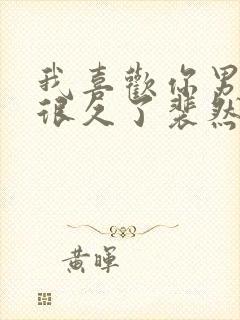 我喜歡你男
很久了裴然
黄暉